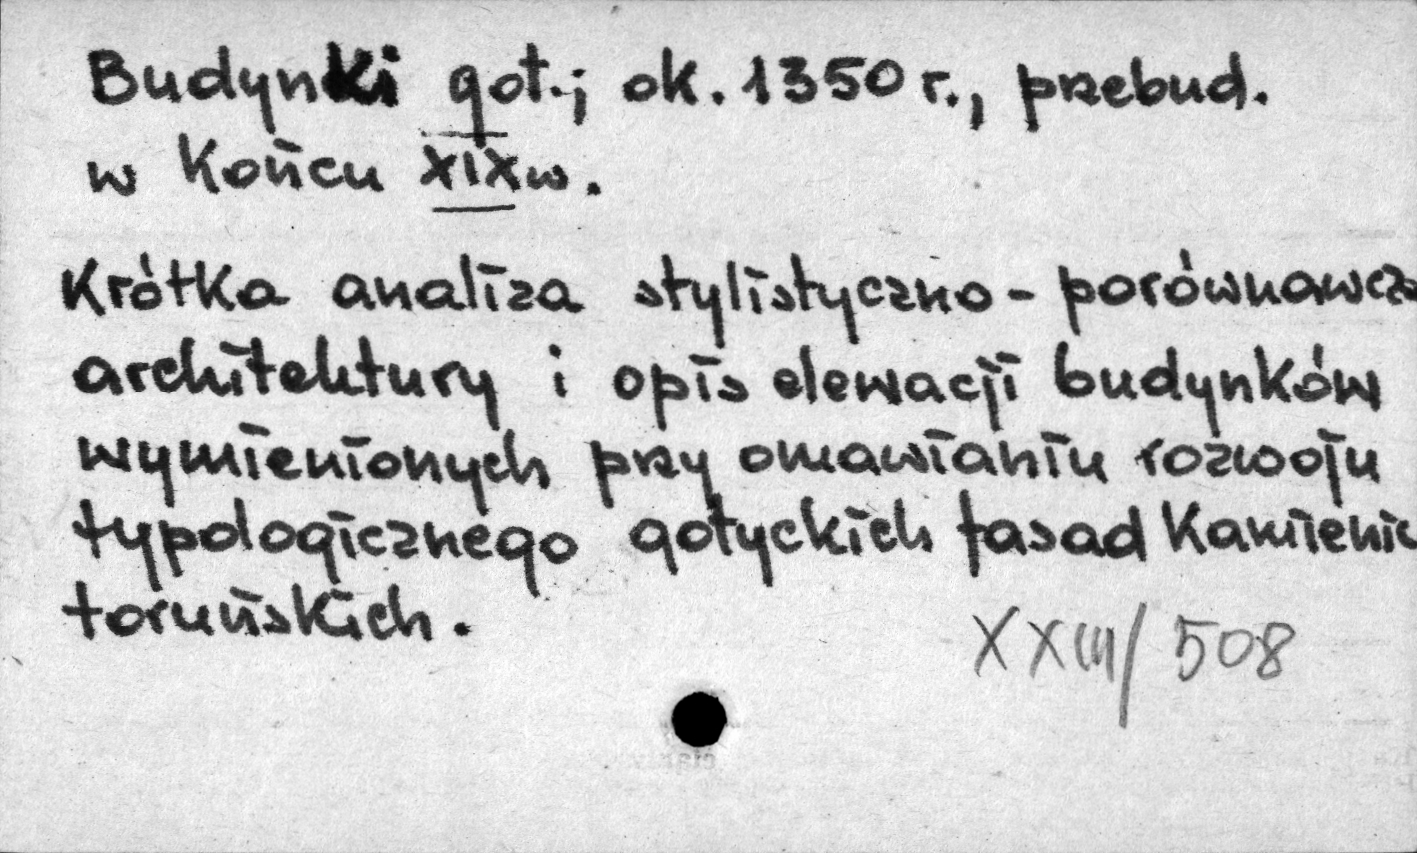 Budynki got.; ok. 1350 r., przebud.
w końcu XIX w.
Krótka analiza stylistyczno - porównawcza
architektury i opis elewacji budynków
wymienionych przy omawianiu rozwoju
typologicznego gotyckich fasad kamienic
toruńskich.
XXIII/508